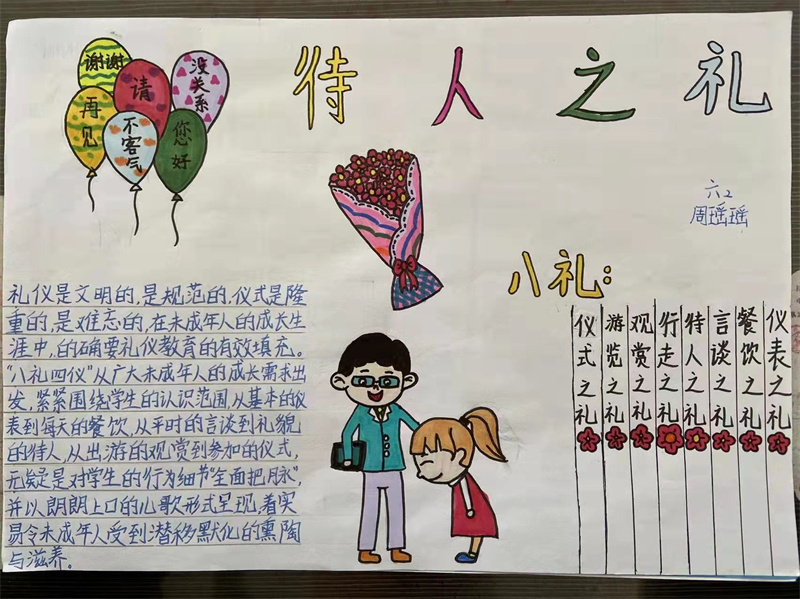 待人之礼
谢谢
请
没关系
再见
不客气
您好
六2
周瑶瑶
礼仪是文明的,是规范的,仪式是隆
重的,是难忘的,在未成年人的成长生
涯中,的确要礼仪教育的有效填充。
“八礼四仪”从广大未成年人的成长需求出
发,紧紧围绕学生的认识范围从基本的仪
表到每天的餐饮,从平时的言谈到礼貌
的待人,从出游的观赏到参加的仪式,
无疑是对学生的行为细节“全面把脉”,
并以朗朗上口的儿歌形式呈现,着实
易令未成年人受到潜移默化的熏陶
与滋养。
八礼:
仪表之礼
餐饮之礼
言谈之礼
待人之礼
行走之礼
观赏之礼
游览之礼
仪式之礼